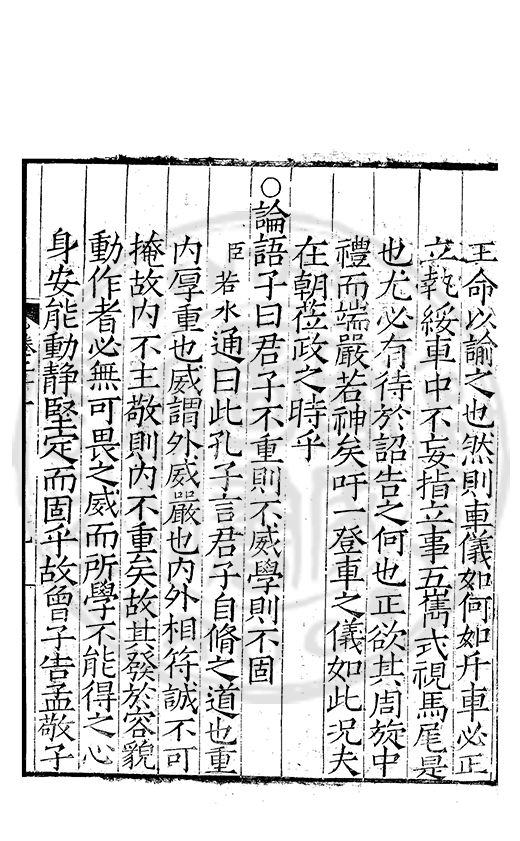 王命以諭之也然則車儀如何如升車必正
立執綏車中不妄指立事五雋式視馬尾是
也尤必有待於詔告之何也正欲其周旋中
禮而端嚴若神矣吁一登車之儀如此況夫
在朝莅政之時乎
○論語子曰君子不重則不威學則不固
臣若水通曰此孔子言君子自脩之道也重
内厚重也威謂外威嚴也内外相符誠不可
掩故内不主敬則内不重矣故其發於容貌
動作者必無可畏之威而所學不能得之心
身安能動静堅定而固乎故曾子告孟敬子